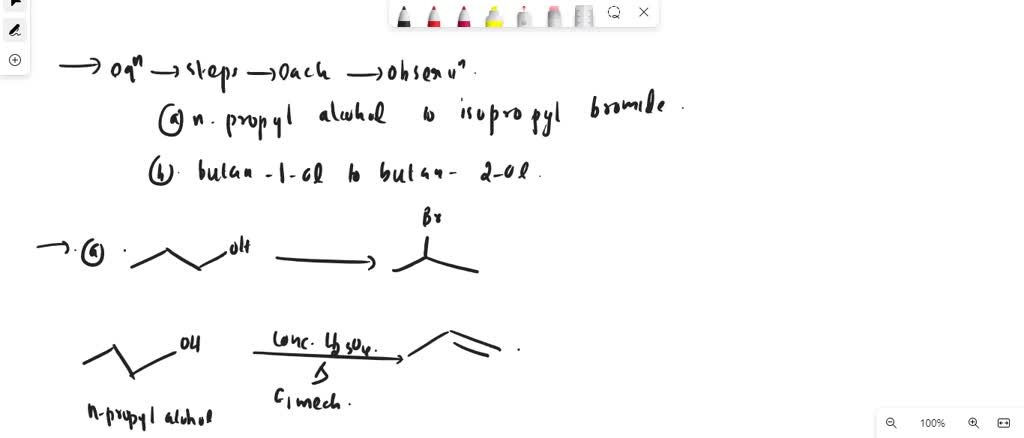 → oqⁿ → steps → oach → observⁿ.
(a) n. propyl alcohol to isopropyl bromide.
(b). butan-1-ol to butan-2-ol.
Br
→. (a). OH
OH conc. H₂SO₄.
Δ
n-propyl alcohol E₁ mech.
100%